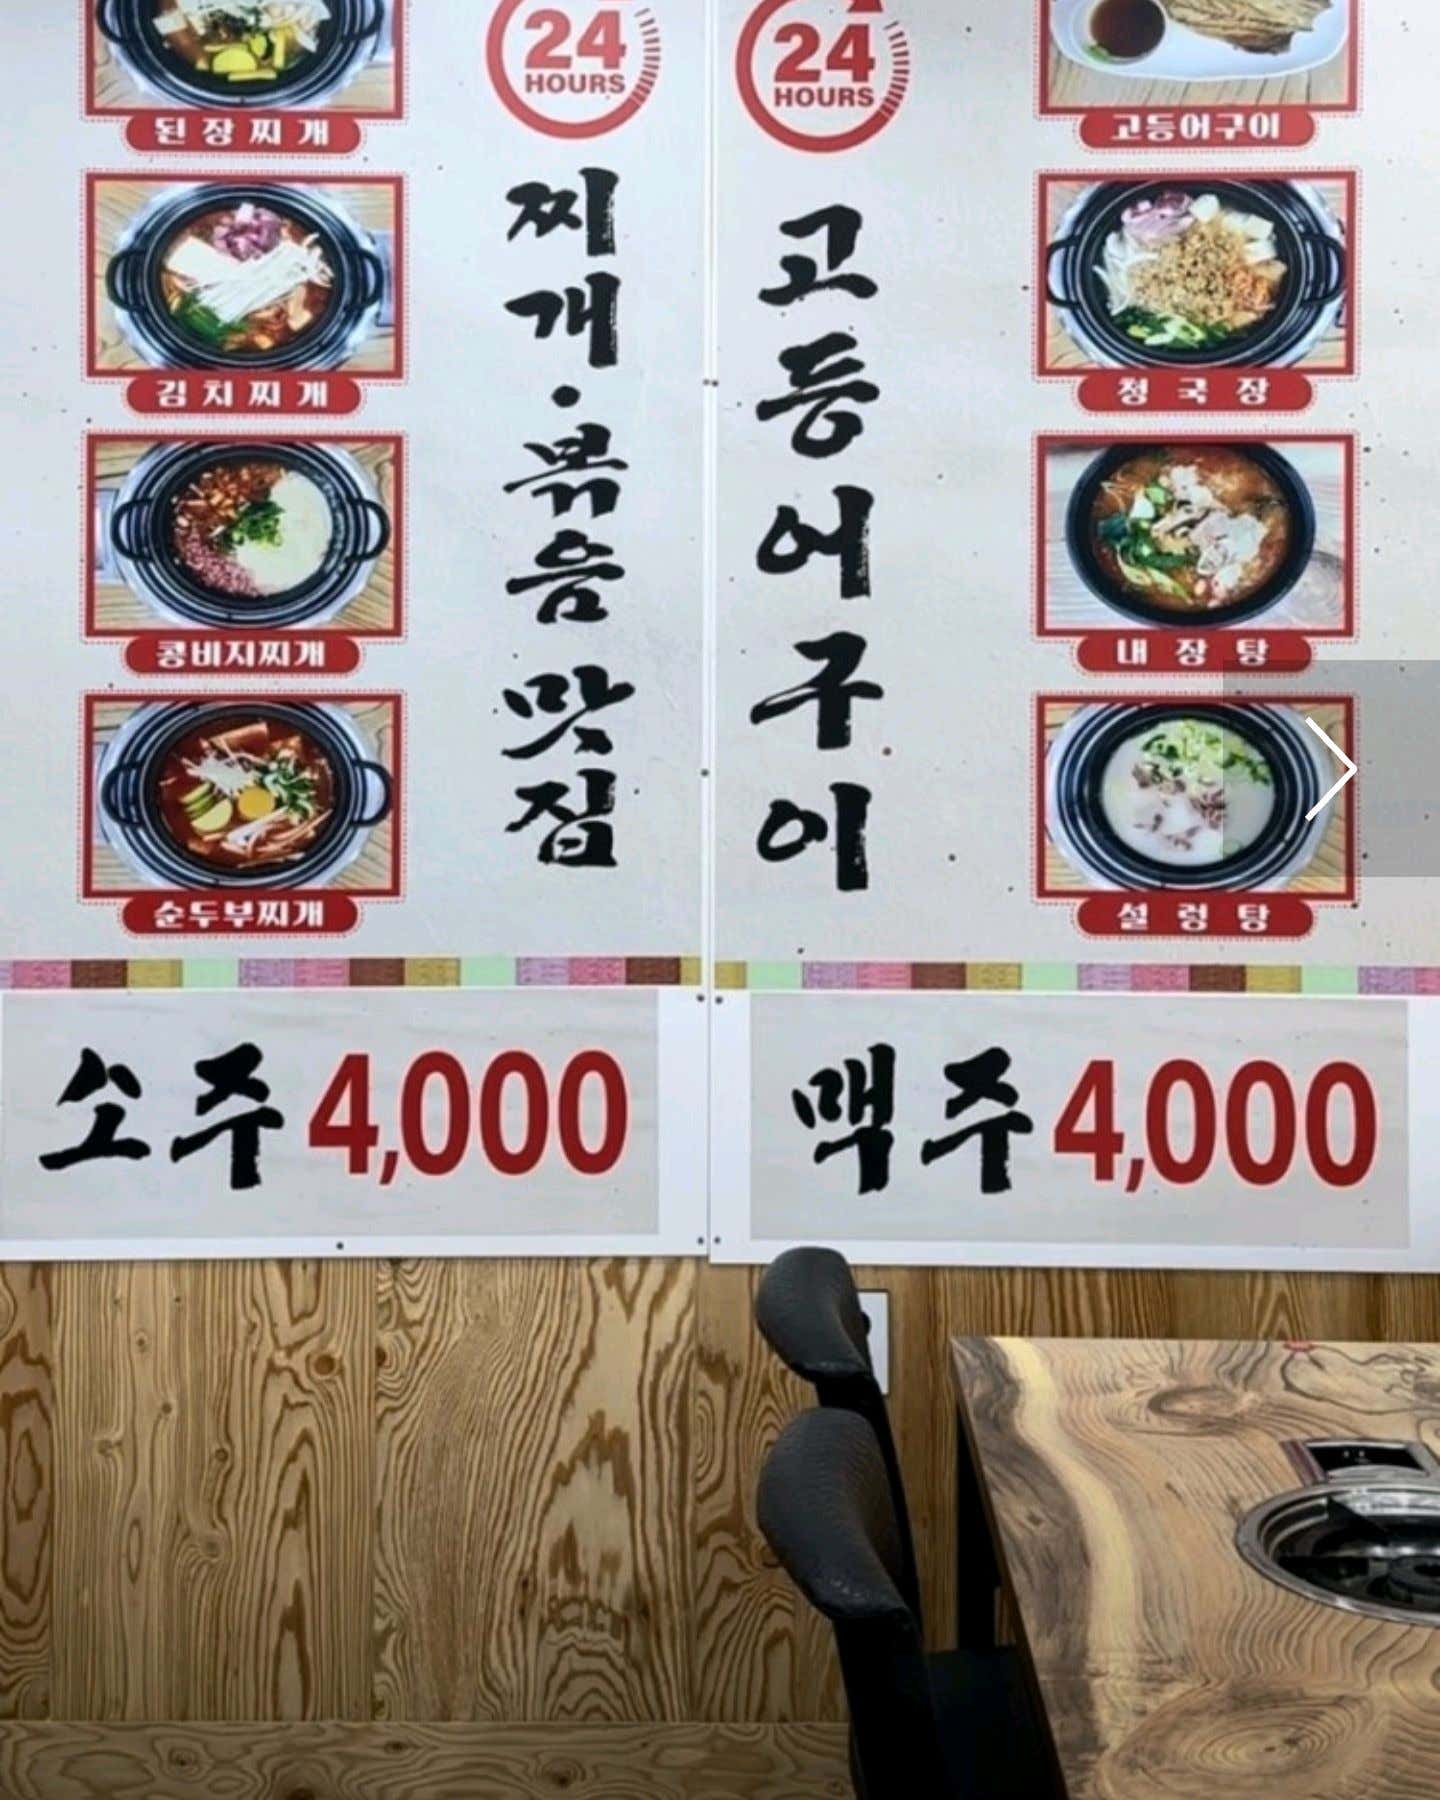 24
HOURS
된장찌개
김치찌개
콩비지찌개
순두부찌개
찌개·볶음 맛집
소주 4,000
24
HOURS
고등어구이
고등어구이
청국장
내장탕
설렁탕
맥주 4,000